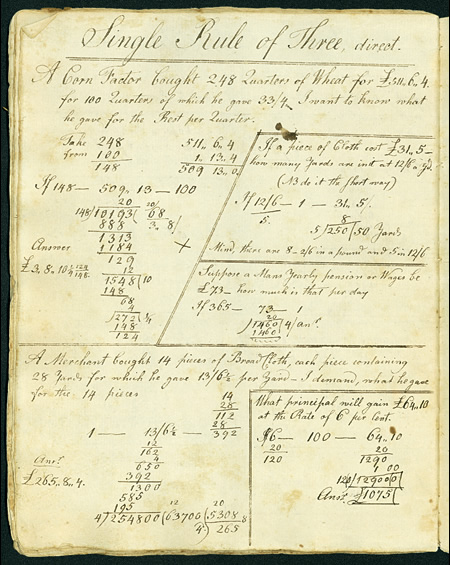 Single Rule of Three, direct.
A Corn Factor bought 248 Quarters of Wheat for £511..6..4.
for 100 Quarters of which he gave 33/4 I want to know what
he gave for the Rest per Quarter.
Take 248
from 100
148
511.. 6.. 4
1.. 13.. 4
509 13.. 0
If 148 — 509.. 13 — 100
20 10/
148)10193( 68
888 3.. 8/
1313
1184
129
12
1548 (10
148
68
4
)272( 1/4
148
124
Answer
£3..8..10¼ 124/148
If a piece of Cloth cost £31..5—
how many Yards are in it at 12/6 a Yd.
(NB do it the short way)
If 12/6 — 1 — 31.. 5/.
5. 8
5)250(50 Yards
Mind, there are 8 - 2/6 in a pound and 5 in 12/6
Suppose a Mans Yearly pension or Wages be
£73 — how much is that per day
If 365 — 73 — 1
20
)1460(4/ ansr.
1460
A Merchant bought 14 pieces of Broad Cloth, each piece containing
28 Yards for which he gave 13/6½ per Yard — I demand, what he gave
for the 14 pieces
14
28
112
28
1 — 13/6½ — 392
12
162
4
650
392
1300
585
195
12 20
4)254800(63700(5308..8
4. 265
Ansr.
£265..8..4.
What principal will gain £64..10
at the Rate of 6 per Cent.
If 6 — 100 — 64..10
20 20
120 1290
100
120)129000(
Ansr. £1075